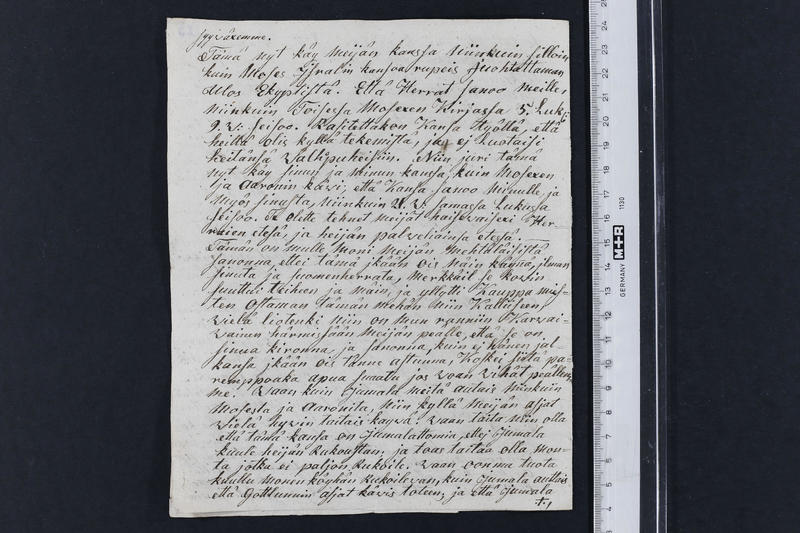 jyyväremme.
Tämä nyt käy meijän kanssa niinkuin silloin
kuin Moses Israelin kansoa rupeis juohtattaman
Ulos Ekyptistä. Että Herrat sanoo meille
niinkuin Toisessa Mosexen Kirjassa 5. Luk:
9. v: seisoo. Rasitettakon Kansa työllä, että
heillä olis kyllä tekemistä, ja ej Luotaisi
heitänsä Valhepuheisiin. Niin juri tämä
nyt käy sinun ja minun kanssa, kuin Mosexen
ja Aaronin kävi, että Kansa sanoo minulle, ja
myös sinusta, niinkuin 21. v: samassa Lukussa
seisoo. Te olette tehnet meijät haisevaisexi Her-
roien etesä, ja heijän palveliainsa etessä.
Tämän on mulle moni meijän
sanonna, ettei tämä ikään ois näin käynnä, ilman
sinuta ja suomenherrata,
ja näin, ja yllytti Kauppa mies-
ten Ostaman tämän mehän niin Kalliisten,
vielä niin on mun
jään meijän pealle, että se on
sinua kironna, ja sanonna, kuin ej hänen jal-
kansa ikään ois tänne astunna, Koskei siitä pa-
apua suatu jos voan vihat peällem-
me. Vaan kuin Jumala meitä autais niinkuin
Mosesta ja Aaronita, niin kyllä meijän asjat
vielä hyvin taitais kayvä: vaan taita niin olla
että tämä kansa on Jumalattomia, ettej Jumala
kuule heijän Rukoustan. ja toas taitaa olla mon-
ta jotka ei paljon Rukoile. vaan oonma tuola
kuullu monen köyhän Rukoilevan, kuin Jumala auttais
että Gottlunnin asjat kävis toteen, ja että Jumala
1130
M+R
GERMANY